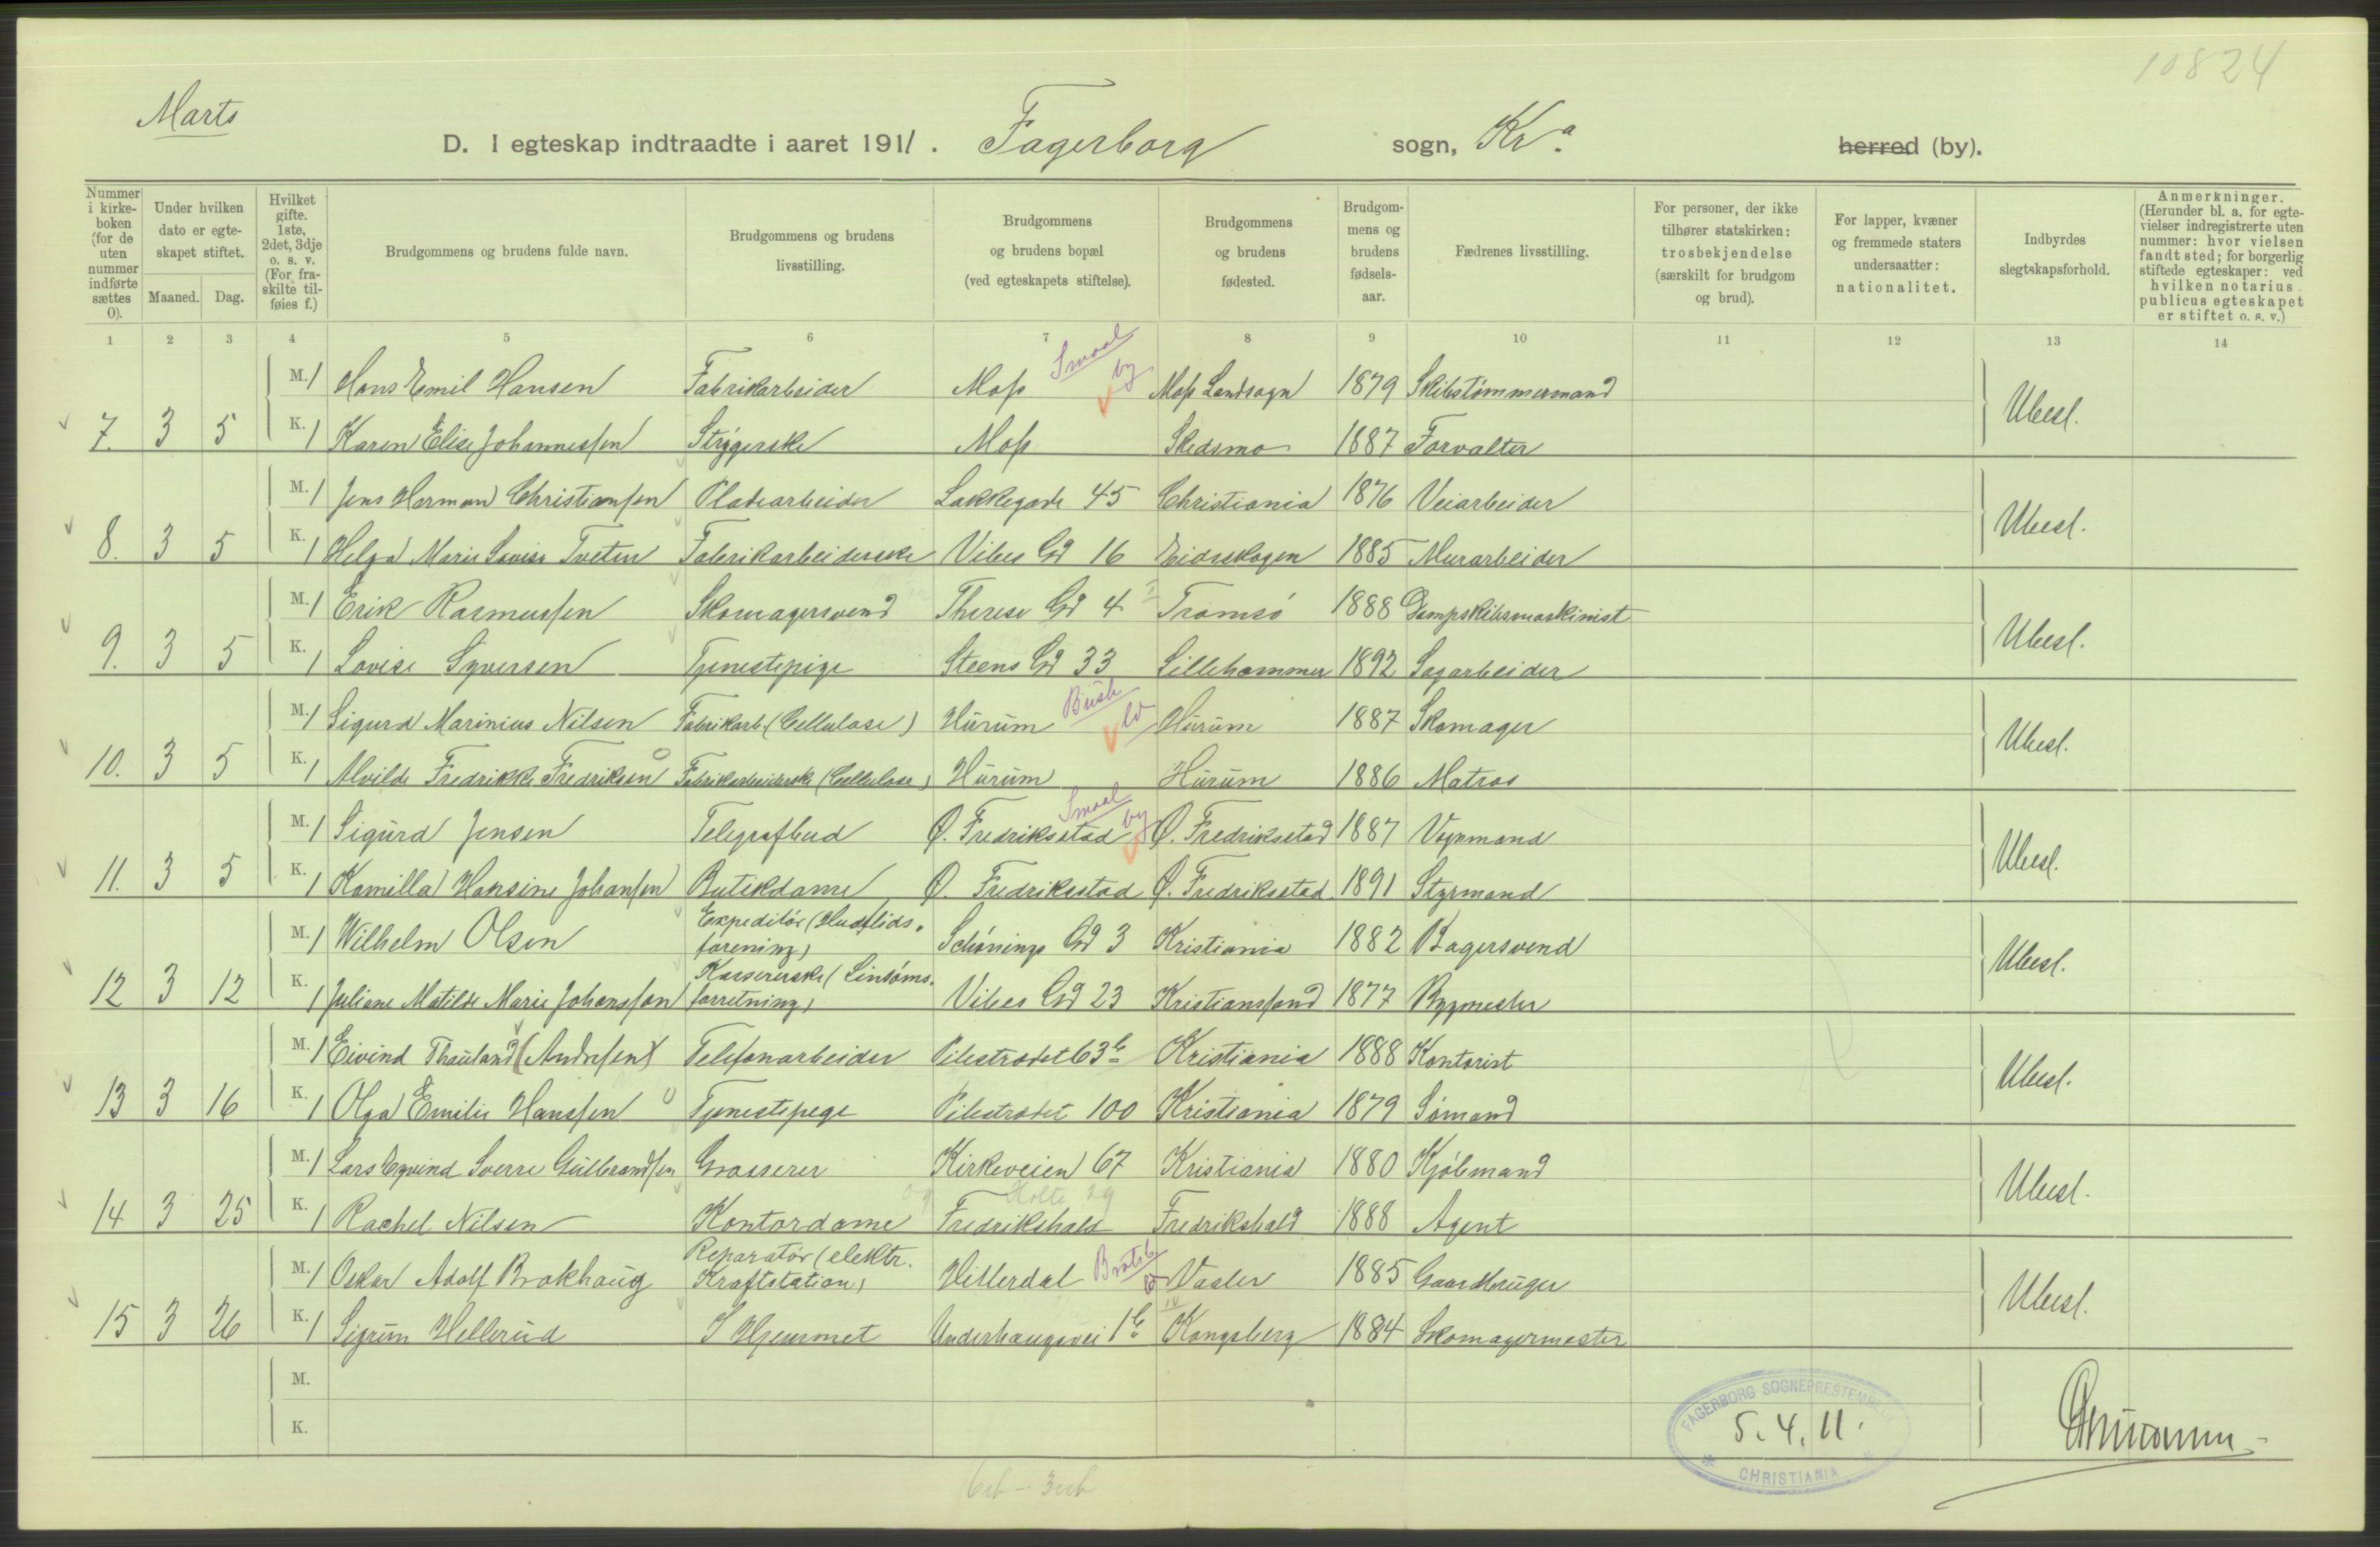 10824
Marts
D. I egteskap indtraadte i aaret 1911. Fagerborg sogn, Kr.a herred (by).
Nummer i kirkeboken (for de uten nummer indførte sættes 0).
Under hvilken dato er egteskapet stiftet.
Maaned. Dag.
Hvilket gifte. 1ste, 2det, 3dje o. s. v. (For fraskilte tilføies f.)
Brudgommens og brudens fulde navn.
Brudgommens og brudens livsstilling.
Brudgommens og brudens bopæl (ved egteskapets stiftelse).
Brudgommens og brudens fødested.
Brudgommens og brudens fødselsaar.
Fædrenes livsstilling.
For personer, der ikke tilhører statskirken: trosbekjendelse (særskilt for brudgom og brud).
For lapper, kvæner og fremmede staters undersaatter: nationalitet.
Indbyrdes slegtskapsforhold.
Anmerkninger. (Herunder bl. a. for egtevielser indregistrerte uten nummer: hvor vielsen fandt sted; for borgerlig stiftede egteskaper: ved hvilken notarius publicus egteskapet er stiftet o. s. v.)
1 2 3 4 5 6 7 8 9 10 11 12 13 14
Smaal by
M. 1 Hans Emil Hansen Fabrikarbeider Moss Moss Landsogn 1879 Skibstømmermand
7. 3 5 K. 1 Karen Elise Johannessen Strygerske Moss Skedsmo 1887 Forvalter Ubesl.
M. 1 Jens Herman Christiansen Pladearbeider Lakkegade 45 Christiania 1876 Veiarbeider
8. 3 5 K. 1 Helga Marie Lovise Tveten Fabrikarbeiderske Vibes Gd 16 Eidsskogen 1885 Murarbeider Ubesl.
M. 1 Erik Rasmussen Skomagersvend Therese Gd 4 Tromsø 1888 Dampskibsmaskinist
9. 3 5 K. 1 Lovise Syversen Tjenestepige Steens Gd 33 Lillehammer 1892 Sagarbeider Ubesl.
Busk ld
M. 1 Sigurd Marinius Nilsen Fabrikarb. (Cellulose) Hurum Hurum 1887 Skomager
10. 3 5 K. 1 Alvilde Fredrikke Fredriksen Fabrikarbeiderske (Cellulose) Hurum Hurum 1886 Matros Ubesl.
Smaal by
M. 1 Sigurd Jensen Telegrafbud Ø. Fredriksstad Ø. Fredriksstad 1887 Vognmand
11. 3 5 K. 1 Kamilla Hansine Johansen Butikdame Ø. Fredriksstad Ø. Fredriksstad 1891 Styrmand Ubesl.
M. 1 Wilhelm Olsen Expeditør (Husflids-forening) Schønings Gd 3 Kristiania 1882 Bagersvend
12 3 12 K. 1 Juliane Matilde Marie Johanssen Kassererske (Lintøms-forretning) Vibes Gd 23 Kristianssand 1877 Bygmester Ubesl.
M. 1 Eivind Thauland (Andresen) Telefonarbeider Pilestrædet 63b Kristiania 1888 Kontorist
13 3 16 K. 1 Olga Emilie Hanssen Tjenestepige Pilestrædet 100 Kristiania 1879 Sømand Ubesl.
M. 1 Lars Eyvind Sverre Gulbrandsen Grosserer Kirkeveien 67 Kristiania 1880 Kjøbmand
og Holte 29
14 3 25 K. 1 Rachel Nilsen Kontordame Fredrikshald Fredrikshald 1888 Agent Ubesl.
M. 1 Oskar Adolf Brokhaug Reparatør (elektr. Kraftstation) Hitterdal Bratsb Vaaler 1885 Gaardbruger
15 3 26 K. 1 Sigrun Hellerud I Hjemmet Underhaugsvei 1b Kongsberg 1884 Skomagermester Ubesl.
M.
K.
FAGERBORG SOGNEPRESTEMBEDE
5.4.11.
CHRISTIANIA